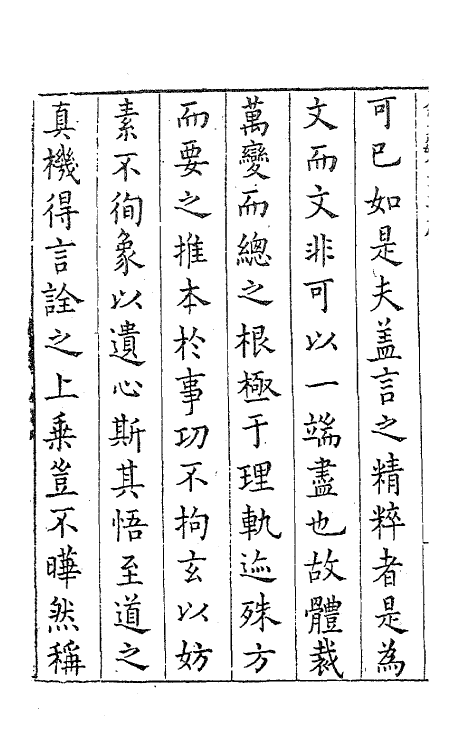 可已如是夫盖言之精粹者是為
文而文非可以一端盡也故體裁
萬變而總之根極于理軌迹殊方
而要之推本於事切不拘玄以妨
素不徇象以遺心斯其悟至道之
真機得言詮之上乗豈不曄然稱